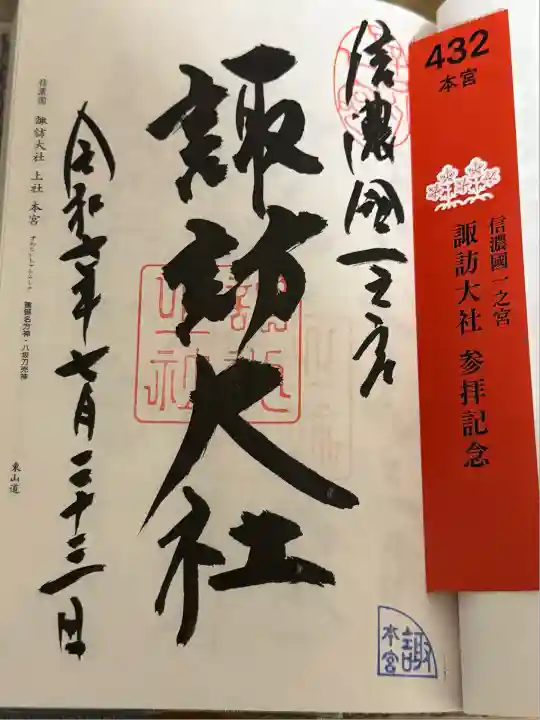 432
本宮
信濃國一之宮
諏訪大社 参拝記念
信濃國一之宮
諏訪大社
令和六年七月二十三日
信濃國 諏訪大社 上社 本宮
建御名方神・八坂刀売神
東山道
諏
本宮